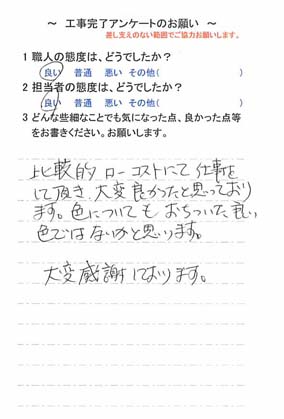 ～ 工事完了アンケートのお願い ～
差し支えのない範囲でご協力お願いします。
1 職人の態度は、どうでしたか？
良い 普通 悪い その他( )
2 担当者の態度は、どうでしたか？
良い 普通 悪い その他( )
3 どんな些細なことでも気になった点、良かった点等
をお書きください。お願いします。
比較的 ローコストにて 仕事を
して頂き、大変良かったと思っており
ます。色についても おちついた良い
色ではないかと思います。
大変感謝しております。